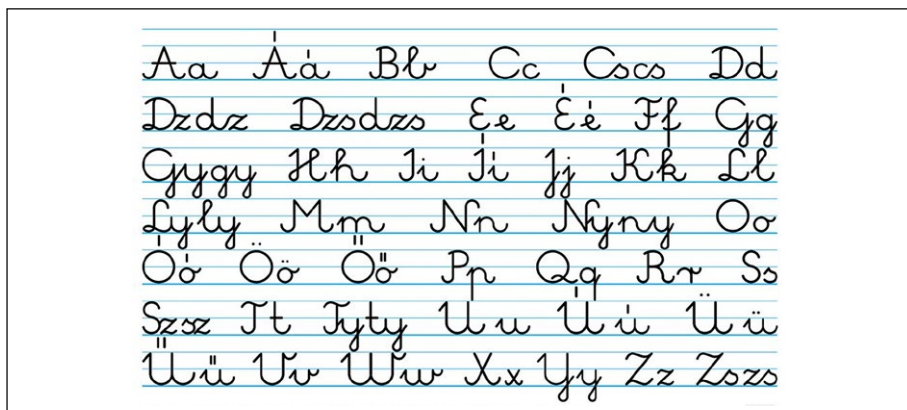 Aa Áá Bb Cc Cscs Dd
Dzdz Dzsdzs Ee Éé Ff Gg
Gygy Hh Ii Íí Jj Kk Ll
Lyly Mm Nn Nyny Oo
Óó Öö Őő Pp Qq Rr Ss
Szsz Tt Tyty Uu Úú Üü
Űű Vv Ww Xx Yy Zz Zszs